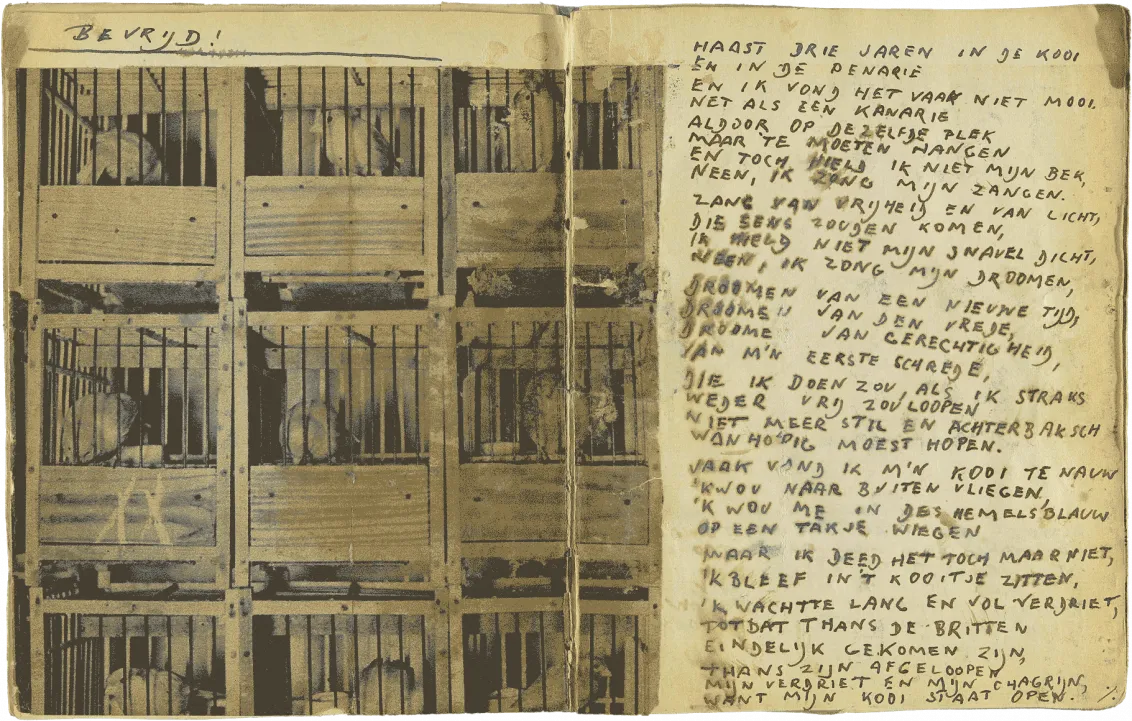 BEVRIJD!
HAAST DRIE JAREN IN DE KOOI
EN IN DE PENARIE
EN IK VOND HET VAAK NIET MOOI.
NET ALS EEN KANARIE
ALDOOR OP DEZELFDE PLEK
MAAR TE MOETEN HANGEN
EN TOCH HIELD IK NIET MIJN BEK,
NEEN, IK ZONG MIJN ZANGEN.
ZANG VAN VRIJHEID EN VAN LICHT,
DIE EENS ZOUDEN KOMEN,
IK HIELD NIET MIJN SNAVEL DICHT,
NEEN, IK ZONG MIJN DROOMEN,
DROOMEN VAN EEN NIEUWE TIJD,
DROOMEN VAN DEN VREDE,
DROOME VAN GERECHTIGHEID,
VAN M'N EERSTE SCHREDE,
DIE IK DOEN ZOU, ALS IK STRAKS
WEDER VRIJ ZOU LOOPEN
NIET MEER STIL EN ACHTERBAKSCH
WANHO'DIG MOEST HOPEN.
VAAK VOND IK M'N KOOI TE NAUW
'K WOU NAAR BUITEN VLIEGEN,
'K WOU ME IN DES HEMELS BLAUW
OP EEN TAKJE WIEGEN
MAAR IK DEED HET TOCH MAAR NIET,
'K BLEEF IN 'T KOOITJE ZITTEN,
'K WACHTTE LANG EN VOL VERDRIET,
TOTDAT THANS DE BRITTEN
EINDELIJK GEKOMEN ZIJN,
THANS ZIJN AFGELOOPEN
MIJN VERDRIET EN MIJN CHAGRIJN,
WANT MIJN KOOI STAAT OPEN.